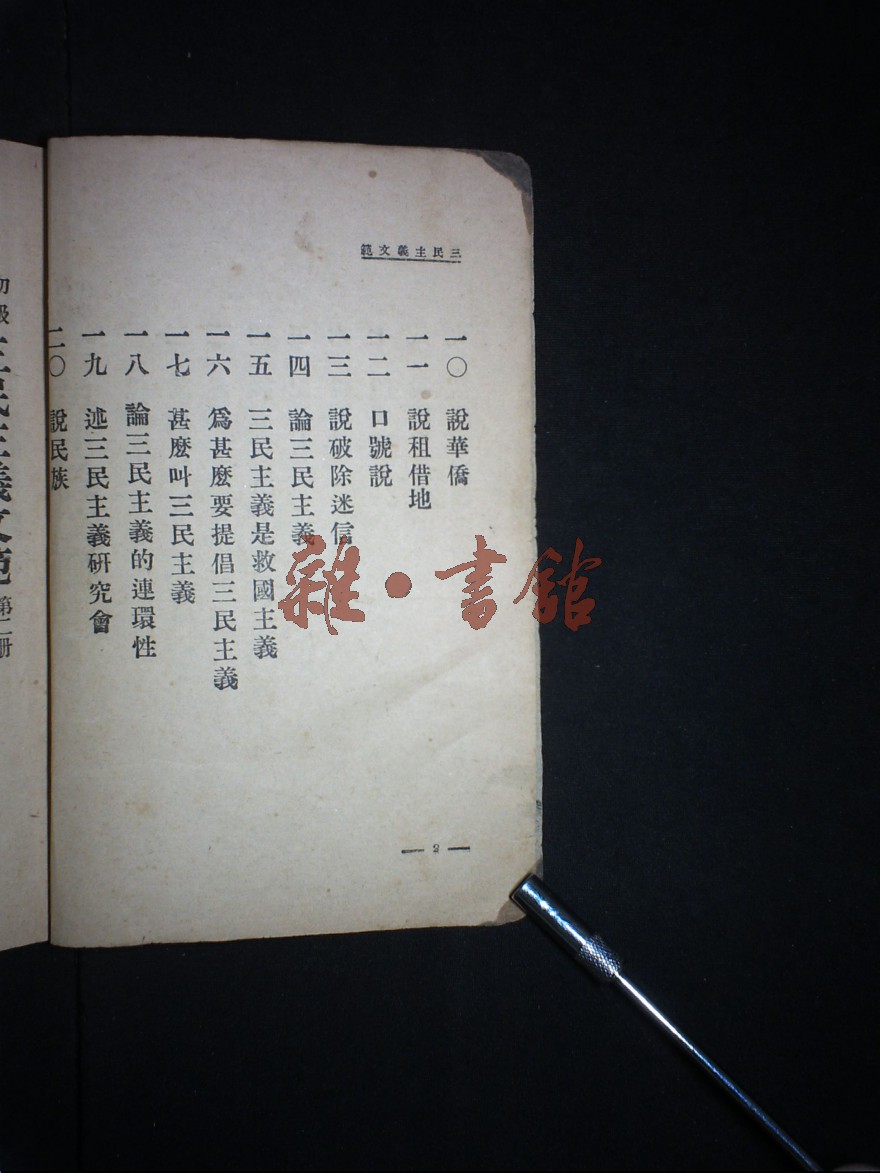 三民主義文範
一〇 說華僑
一一 說租借地
一二 口號說
一三 說破除迷信
一四 論三民主義
一五 三民主義是救國主義
一六 爲甚麼要提倡三民主義
一七 甚麼叫三民主義
一八 論三民主義的連環性
一九 述三民主義研究會
二〇 說民族
— 2 —
初級三民主義文範 第二册
雜·書館